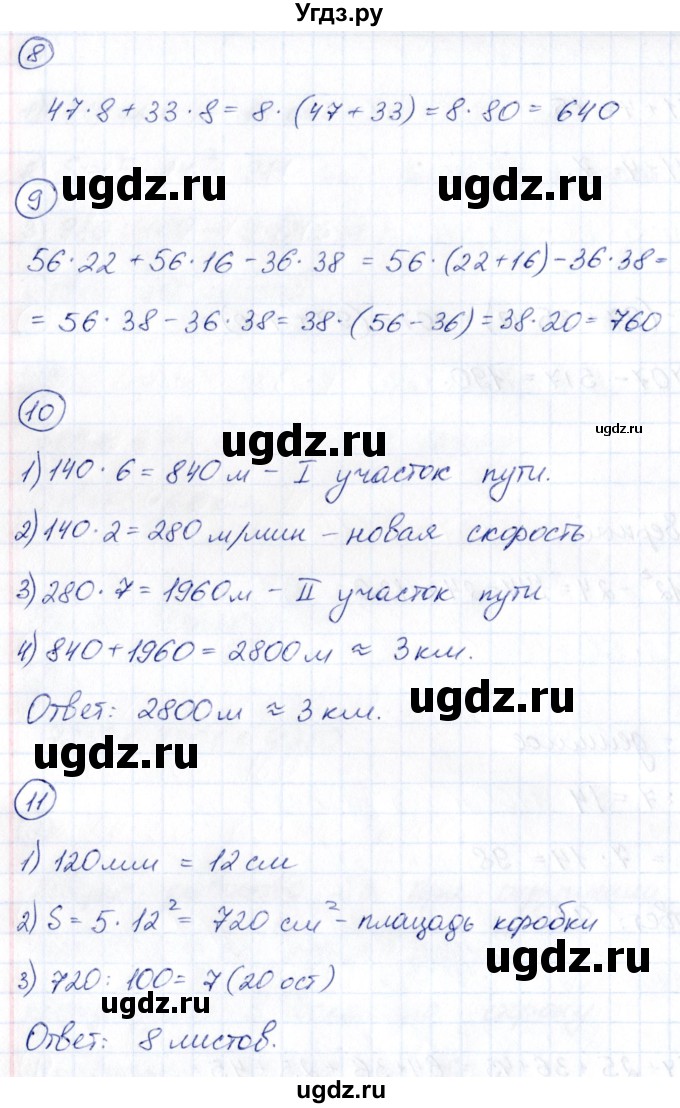 Угдз.ру
8
47·8+33·8=8·(47+33)=8·80=640
ugdz.ru ugdz.ru
9
56·22+56·16-36·38=56·(22+16)-36·38=
=56·38-36·38=38·(56-36)=38·20=760
10
ugdz.ru
1) 140·6=840м - I участок пути.
2) 140·2=280 м/мин - новая скорость
ugdz.ru
3) 280·7=1960м - II участок пути
4) 840+1960=2800м ≈ 3км.
ugdz.ru
Ответ: 2800м ≈ 3км.
ugdz.ru
11
1) 120мм = 12см
2) S=5·12²=720 см² - площадь коробки
ugdz.ru
3) 720:100=7(20 ост)
ugdz.ru
Ответ: 8 листов.
ugdz.ru